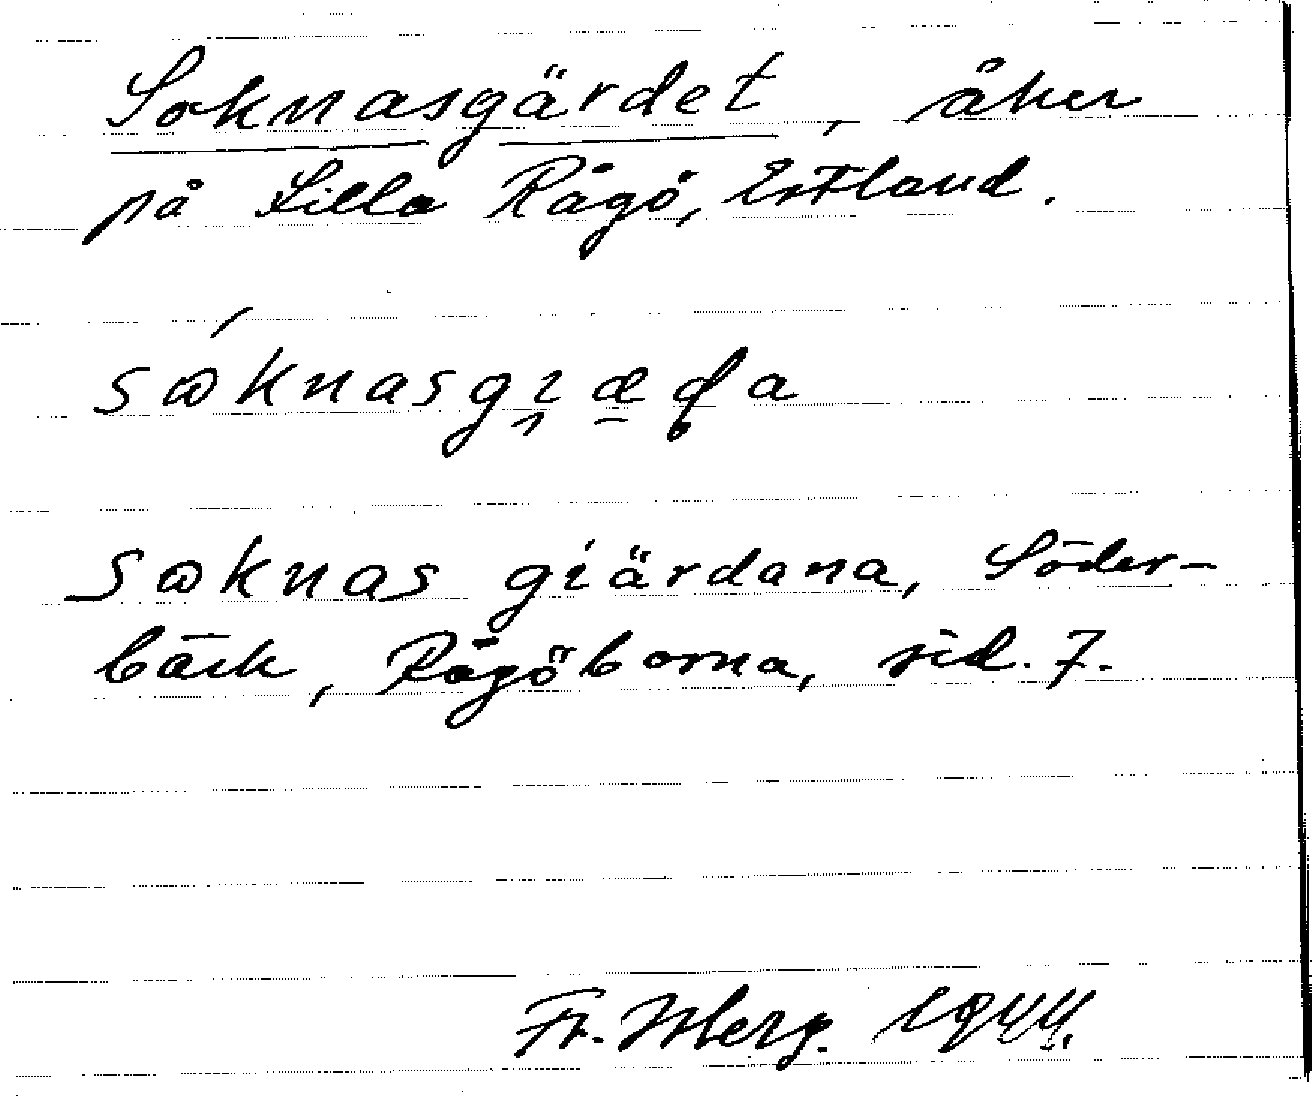 Soknasgärdet, åker
på Lilla Rågö, Estland.
søknas giärdana, Söder-
bäck, Rågöborna, sid. 7.
Fr. Isberg. 1944.